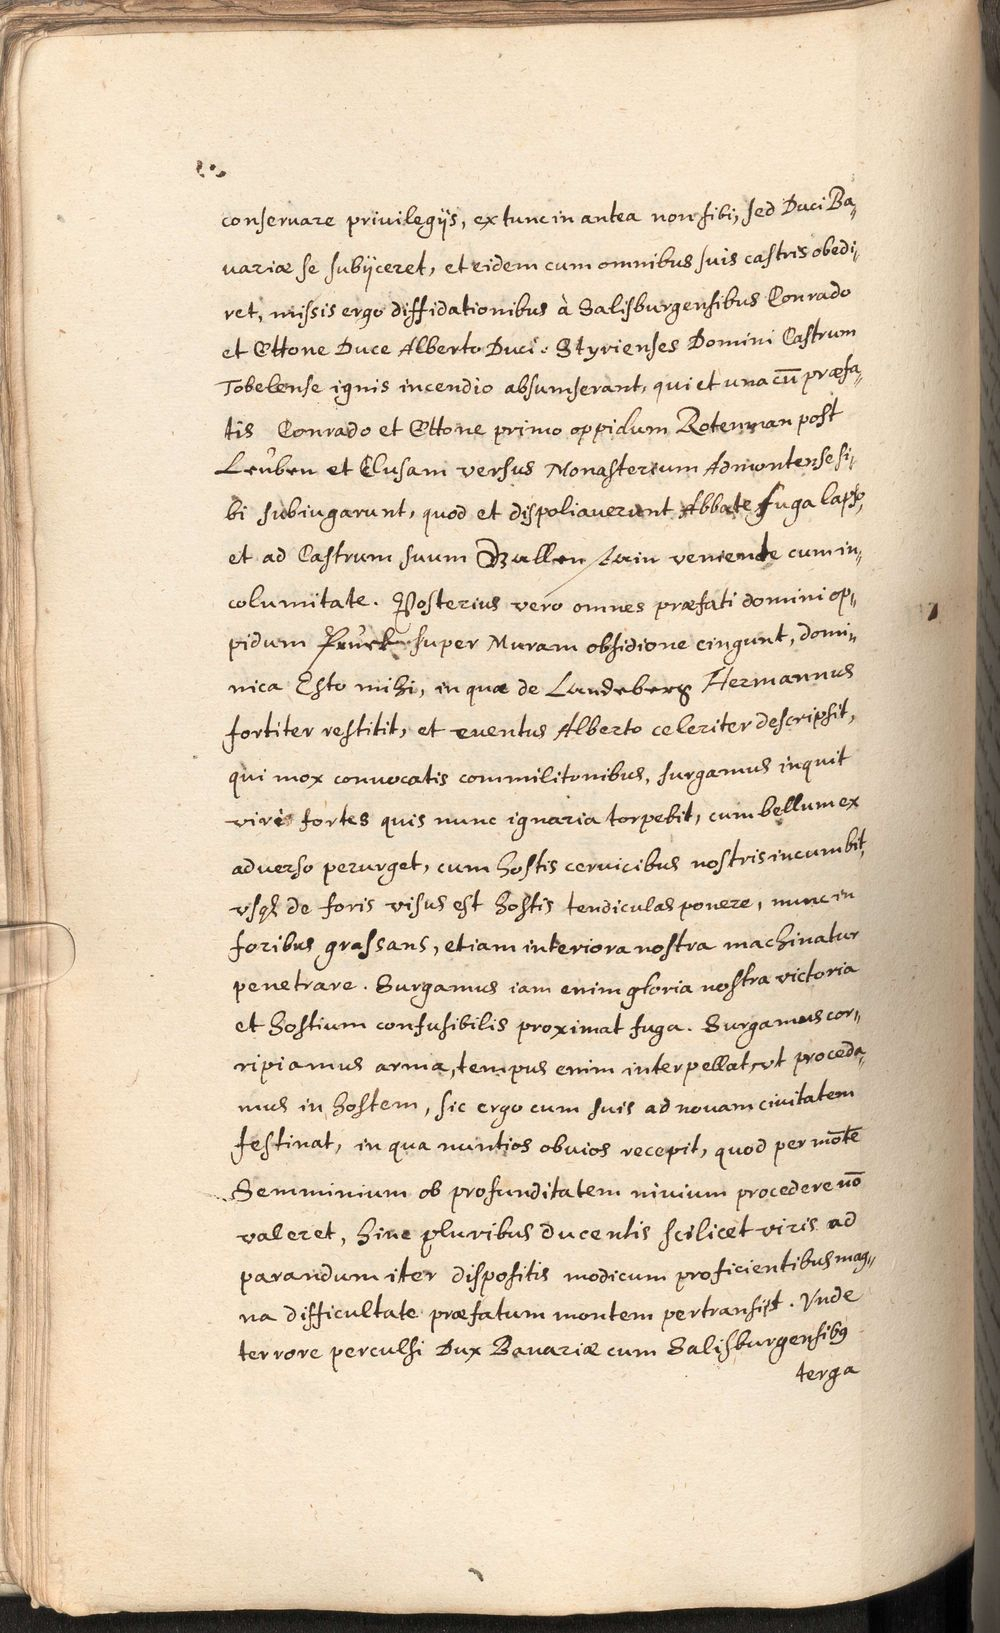 conseruare priuilegijs, ex tunc in antea non sibi, sed Duci Ba⸗
uariæ se subijceret, et eidem cum omnibus suis castris obedi⸗
ret, missis ergo diffidationibus à Salisburgensibus Conrado
et Ottone Duce Alberto Duci: Styrienses Domini Castrum
Tobelense ignis incendio absumserant, qui et una cū præfa⸗
tis Conrado et Ottone primo oppidum Rotenman post
Leuben et Clusam versus Monasterium Admontense si⸗
bi subiugarunt, quod et dispoliauerunt Abbate fuga lapso,
et ad Castrum suum Gallenstain veniende cum in⸗
columitate. Posterius vero omnes præfati domini op⸗
pidum Pruck super Muram obsidione cingunt, domi⸗
nica Esto mihi, in quæ de Landeberg Hermannus
fortiter restitit, et euentus Alberto celeriter descripsit,
qui mox conuocatis commilitonibus, surgamus inquit
viri fortes quis nunc ignaria torpebit, cum bellum ex
aduerso perurget, cum hostis ceruicibus nostris incumbit,
vsq de foris visus est hostis tendiculas ponere, nunc in
foribus grassans, etiam interiora nostra machinatur
penetrare. Surgamus iam enim gloria nostra victoria
et hostium confusibilis proximat fuga. Surgamus cor⸗
ripiamus arma, tempus enim interpellat, vt proceda⸗
mus in hostem, sic ergo cum suis ad nouam ciuitatem
festinat, in qua nuntios obuios recepit, quod per mōtē
Semminium ob profunditatem niuium procedere nō
valeret, hinc pluribus ducentis scilicet viris ad
parandum iter dispositis modicum proficientibus mag⸗
na difficultate præfatum montem pertransijt. Vnde
terrore perculsi Dux Bauariæ cum Salisburgensibꝰ
terga